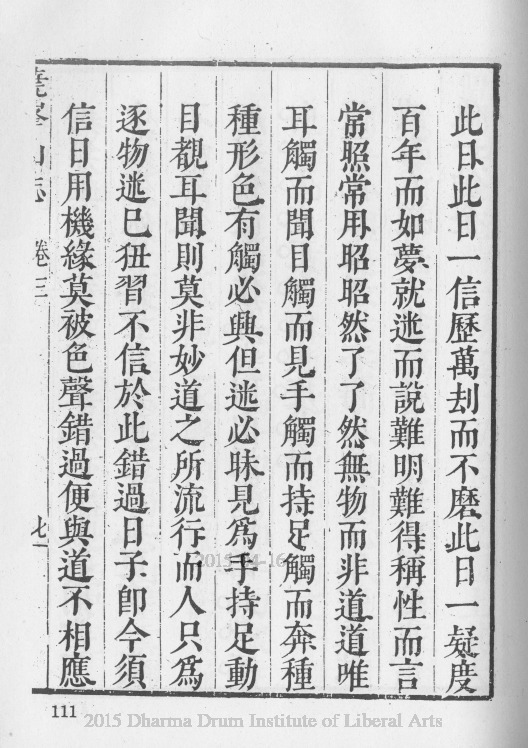 此日此日一信歷萬刦而不磨此日一疑度
百年而如夢就迷而說難明難得稱性而言
常照常用昭昭然了了然無物而非道道唯
耳觸而聞目觸而見手觸而持足觸而奔種
種形色有觸必興但迷必昧見爲手持足動
目覩耳聞則莫非妙道之所流行而人只爲
逐物迷已狃習不信於此錯過日子卽今須
信日用機緣莫被色聲錯過便與道不相應
山志 卷三 七
111
2015 Dharma Drum Institute of Liberal Arts